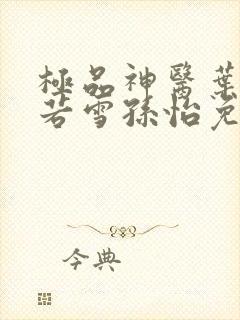 極品神醫葉
若雪孫怡免
今典